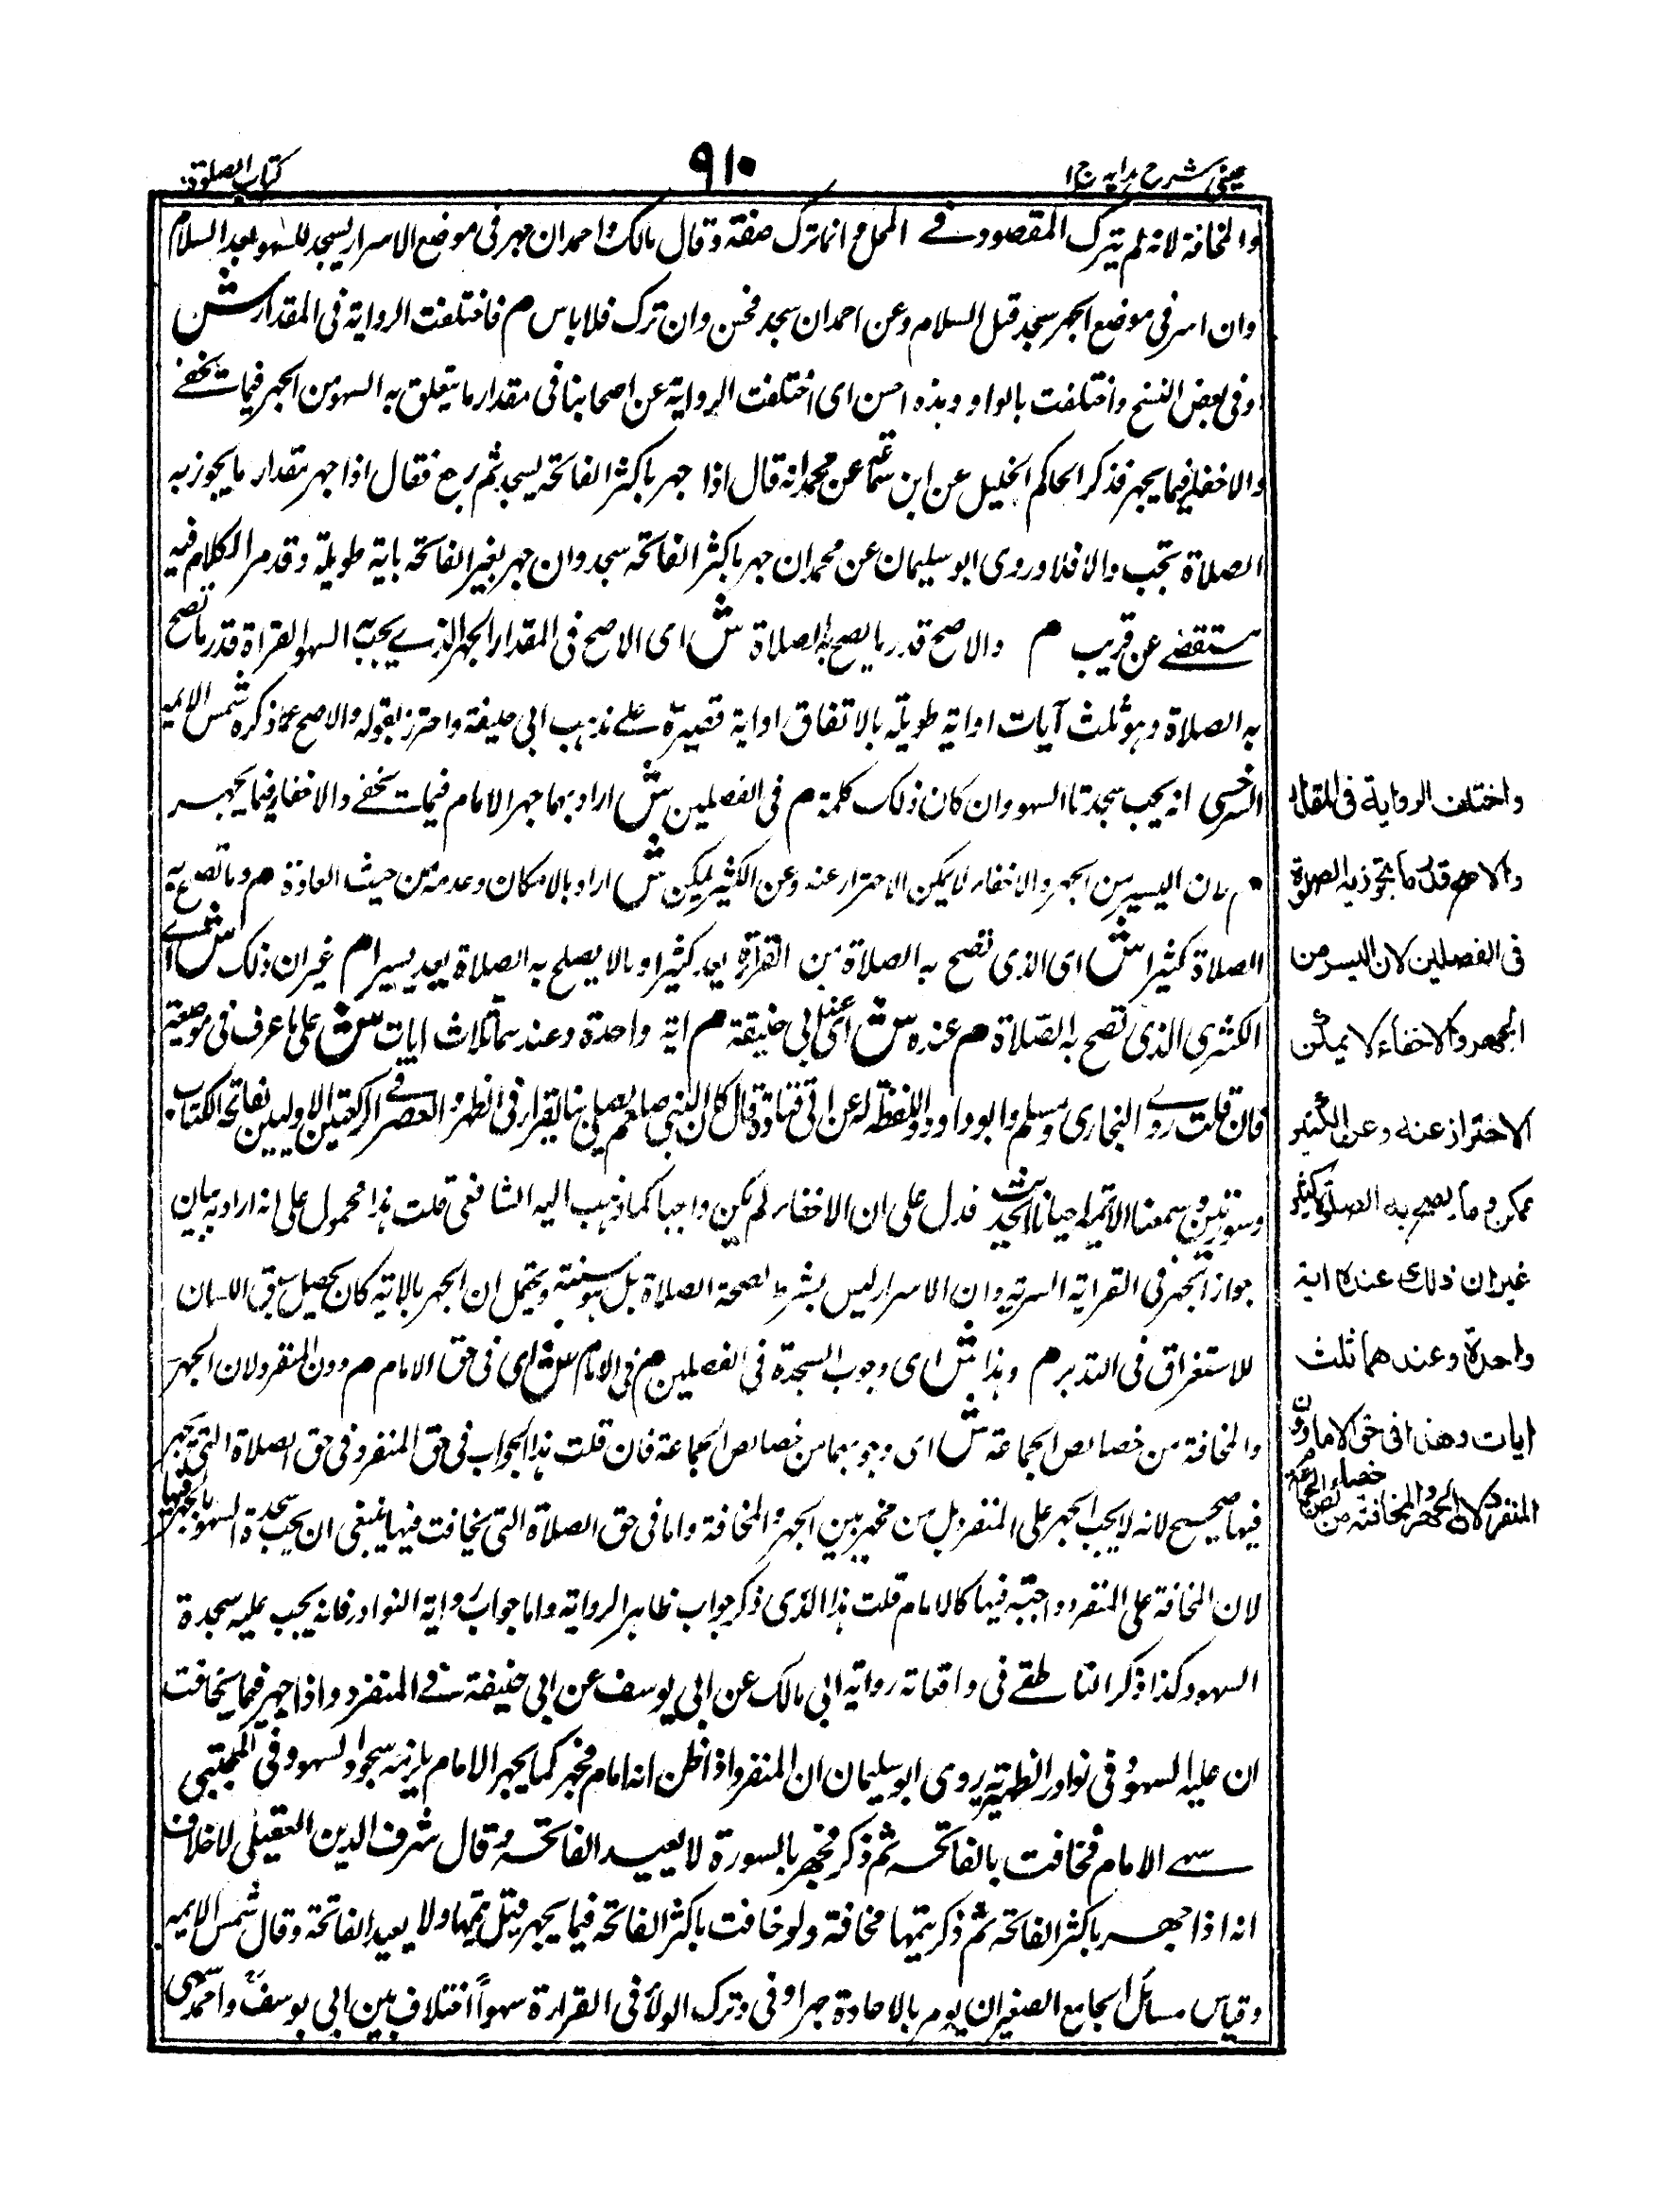 عینی شرح ہدایہ ج ۱
۹۱۰
کتاب الصلوۃ
والمخافتة لانه لم یترک المقصود فے المحل وانما ترک صفته وقال مالک واحمد ان جهر فی موضع الاسرار یسجد للسهو بعد السلام
وان اسر فی موضع الجهر سجد قبل السلام وعن احمد ان سجد فحسن وان ترک فلا باس م فاختلفت الروایة فی المقدار ش
وفی بعض النسخ واختلفت بالواو وهذه احسن ای اختلفت الروایة عن اصحابنا فی مقدار ما یتعلق به السهو من الجهر فیما یخفے
والاخفاء فیما یجهر فذکر الحاکم الجلیل عن ابن سماعة عن محمد انه قال اذا جهر باکثر الفاتحة یسجد ثم رجع فقال اذا جهر مقدار ما یجوز به
الصلاة تجب والا فلا وروی ابو سلیمان عن محمد ان جهر باکثر الفاتحة سجد وان جهر بغیر الفاتحة بایة طویلة وقد مر الکلام فیه
مستقصے عن قریب م والاصح قدر ما یصح به الصلاة ش ای الاصح فی المقدار الجهر الذے یجب به السهو القراة قدر ما تصح
به الصلاة وهو ثلث آیات او ایة طویلة بالاتفاق او ایة قصیرة علے مذهب ابی حنیفة واحترز بقوله والاصح عما ذکره شمس الایمة
السرخسی انه یجب سجدتا السهو وان کان ذلک کلمة م فی الفصلین ش اراد بهما جهر الامام فیما یخفے والاخفاء فیما یجهر
م لان الیسیر من الجهر والاخفاء لا یمکن الاحتراز عنه وعن الکثیر یمکن ش اراد بالامکان وعدمه من حیث العادة م وما تصح به
الصلاة کثیر ش ای الذی تصح به الصلاة من القراة یعد کثیرا وما لا یصلح به الصلاة یعد یسیرا م غیر ان ذلک ش اے
الکثیر الذی تصح به الصلاة م عنده ش ای عند ابی حنیفة م ایة واحدة وعندهما ثلاث ایات ش علی ما عرف فی موضعه
فان قلت روے البخاری ومسلم وابو داود واللفظ له عن ابی قتادة قال کان النبی صلعم یصلی بنا یقرا فی الظهر والعصر فے الرکعتین الاولیین بفاتحة الکتاب
وسورتین ویسمعنا الآیة احیانا الحدیث فدل علی ان الاخفاء لم یکن واجبا کما ذهب الیه الشافعی قلت هذا محمول علی انه اراد به بیان
جواز الجهر فی القراءة السریة وان الاسرار لیس بشرط لصحة الصلاة بل هو سنة ویحتمل ان الجهر بالایة کان یحصل بسبق اللسان
للاستغراق فی التدبر م وهذا ش ای وجوب السجدة فی الفصلین م فی الامام ش ای فی حق الامام م دون المنفرد لان الجهر
والمخافتة من خصائص الجماعة ش ای وجوبهما من خصائص الجماعة فان قلت هذا الجواب فی حق المنفرد فی حق الصلاة التی یجهر
فیها صحیح لانه لا یجب الجهر علی المنفرد بل من مخیر بین الجهر والمخافتة واما فی حق الصلاة التی یخافت فیها ینبغی ان یجب سجدة السهو بالجهر فیها
لان المخافتة علی المنفرد واجبة فیها کالامام قلت هذا الذی ذکر جواب ظاهر الروایة واما جواب روایة النوادر فانه یجب علیه سجدة
السهو وکذا ذکر الناطفے فی واقعاته روایة ابی مالک عن ابی یوسف عن ابی حنیفة فے المنفرد واذا جهر فیما یخافت
ان علیه السهو وفی نوادر الظهیریة یروی ابو سلیمان ان المنفرد اذا ظن انه امام فجهر کما یجهر الامام یلزمه سجود السهو وفی المجتبی
سهے الامام فخافت بالفاتحة ثم ذکر فجهر بالسورة لا یعید الفاتحة وقال شرف الدین العقیلی لا خلاف
انه اذا جهر باکثر الفاتحة ثم ذکر یتمها مخافتة ولو خافت باکثر الفاتحة فیما یجهر قیل یتمها ولا یعید الفاتحة وقال شمس الایمة
وقیاس مسائل الجامع الصغیر ان یومر بالاعادة جهرا وفی وترک الولاء فی القراءة سهواً اختلاف بین ابی یوسف واحمد
واختلف الروایة فی المقدار
والاصح قدر ما تجوز به الصلوة
فی الفصلین لان الیسیر من
الجهر والاخفاء لا یمکن
الاحتراز عنه وعن الکثیر
ممکن وما یصح به الصلوة کثیر
غیر ان ذلک عنده ایة
واحدة وعندهما ثلث
ایات وهذا فی حق الامام دون
المنفرد لان الجهر والمخافتة من خصائص الجماعة